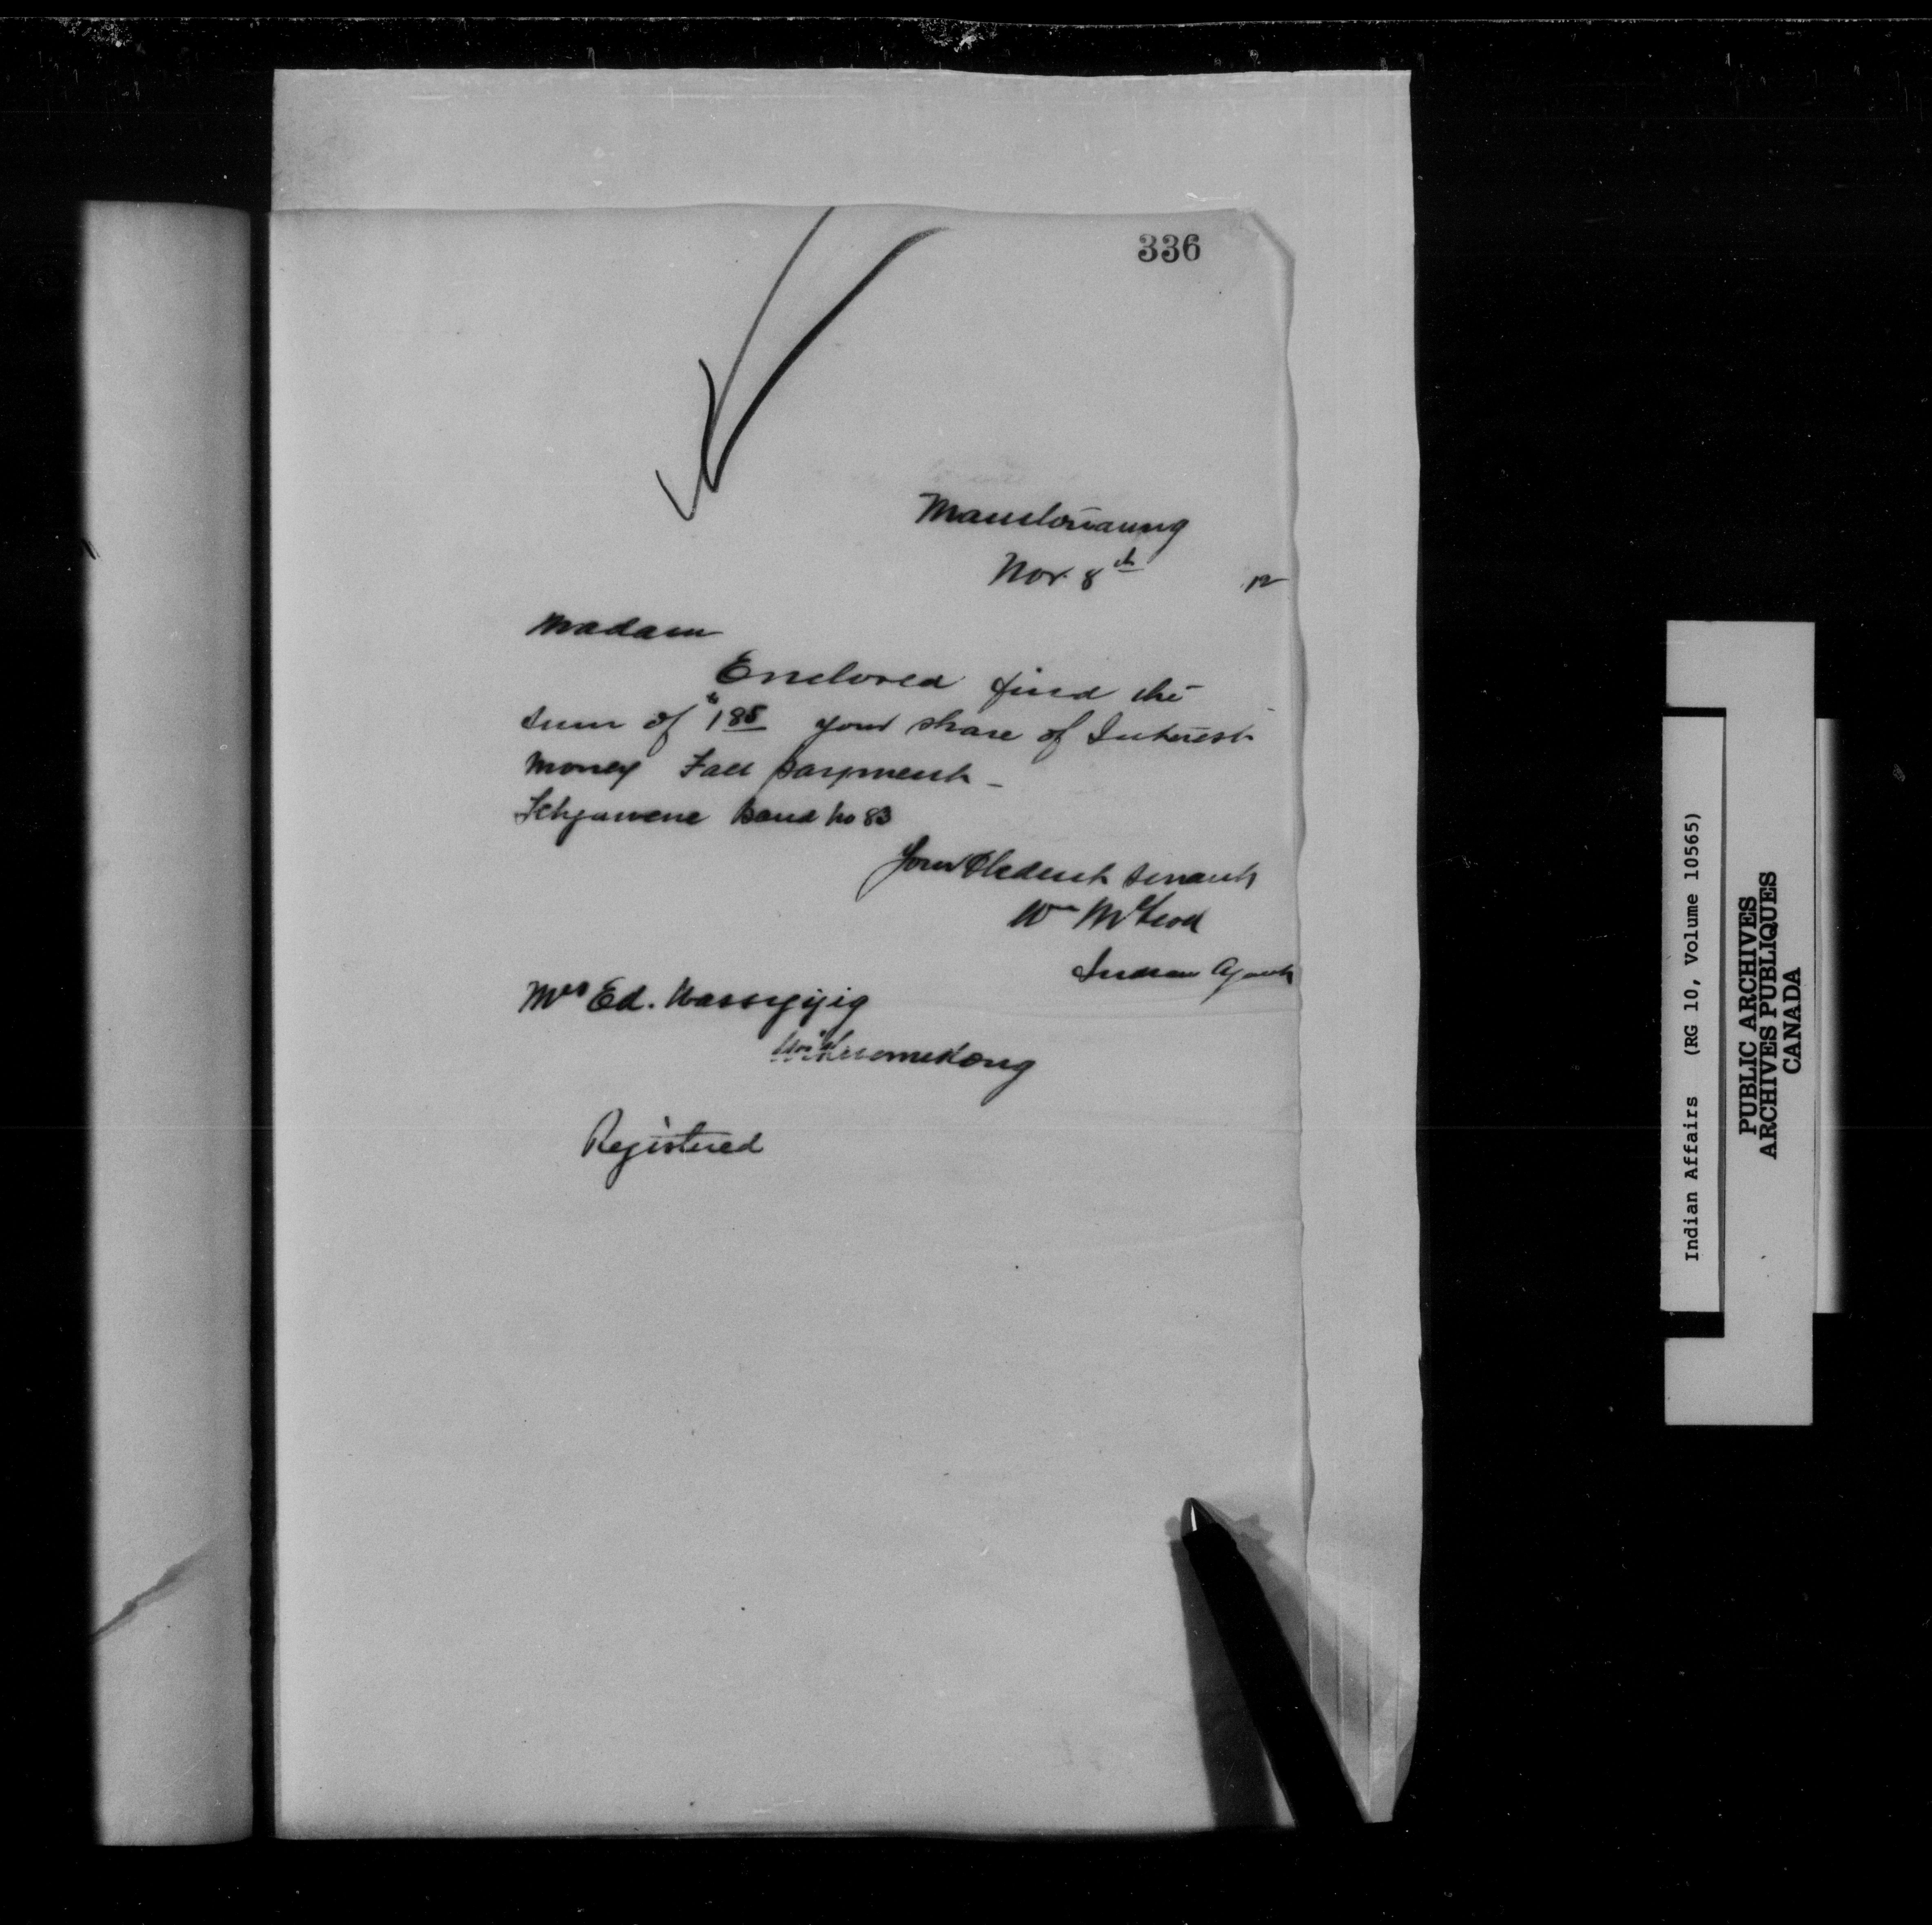 336
Manitowaning
Nov. 8th 12
Madam
Enclosed find the
sum of $1.85 your share of Interest
money Fall payment -
Band No 83
Your Obedient servant
Wm McLeod
Indian Agent
Mrs Ed. Wassegijig
Wikwemikong
Registered
Indian Affairs (RG 10, Volume 10565)
PUBLIC ARCHIVES
ARCHIVES PUBLIQUES
CANADA